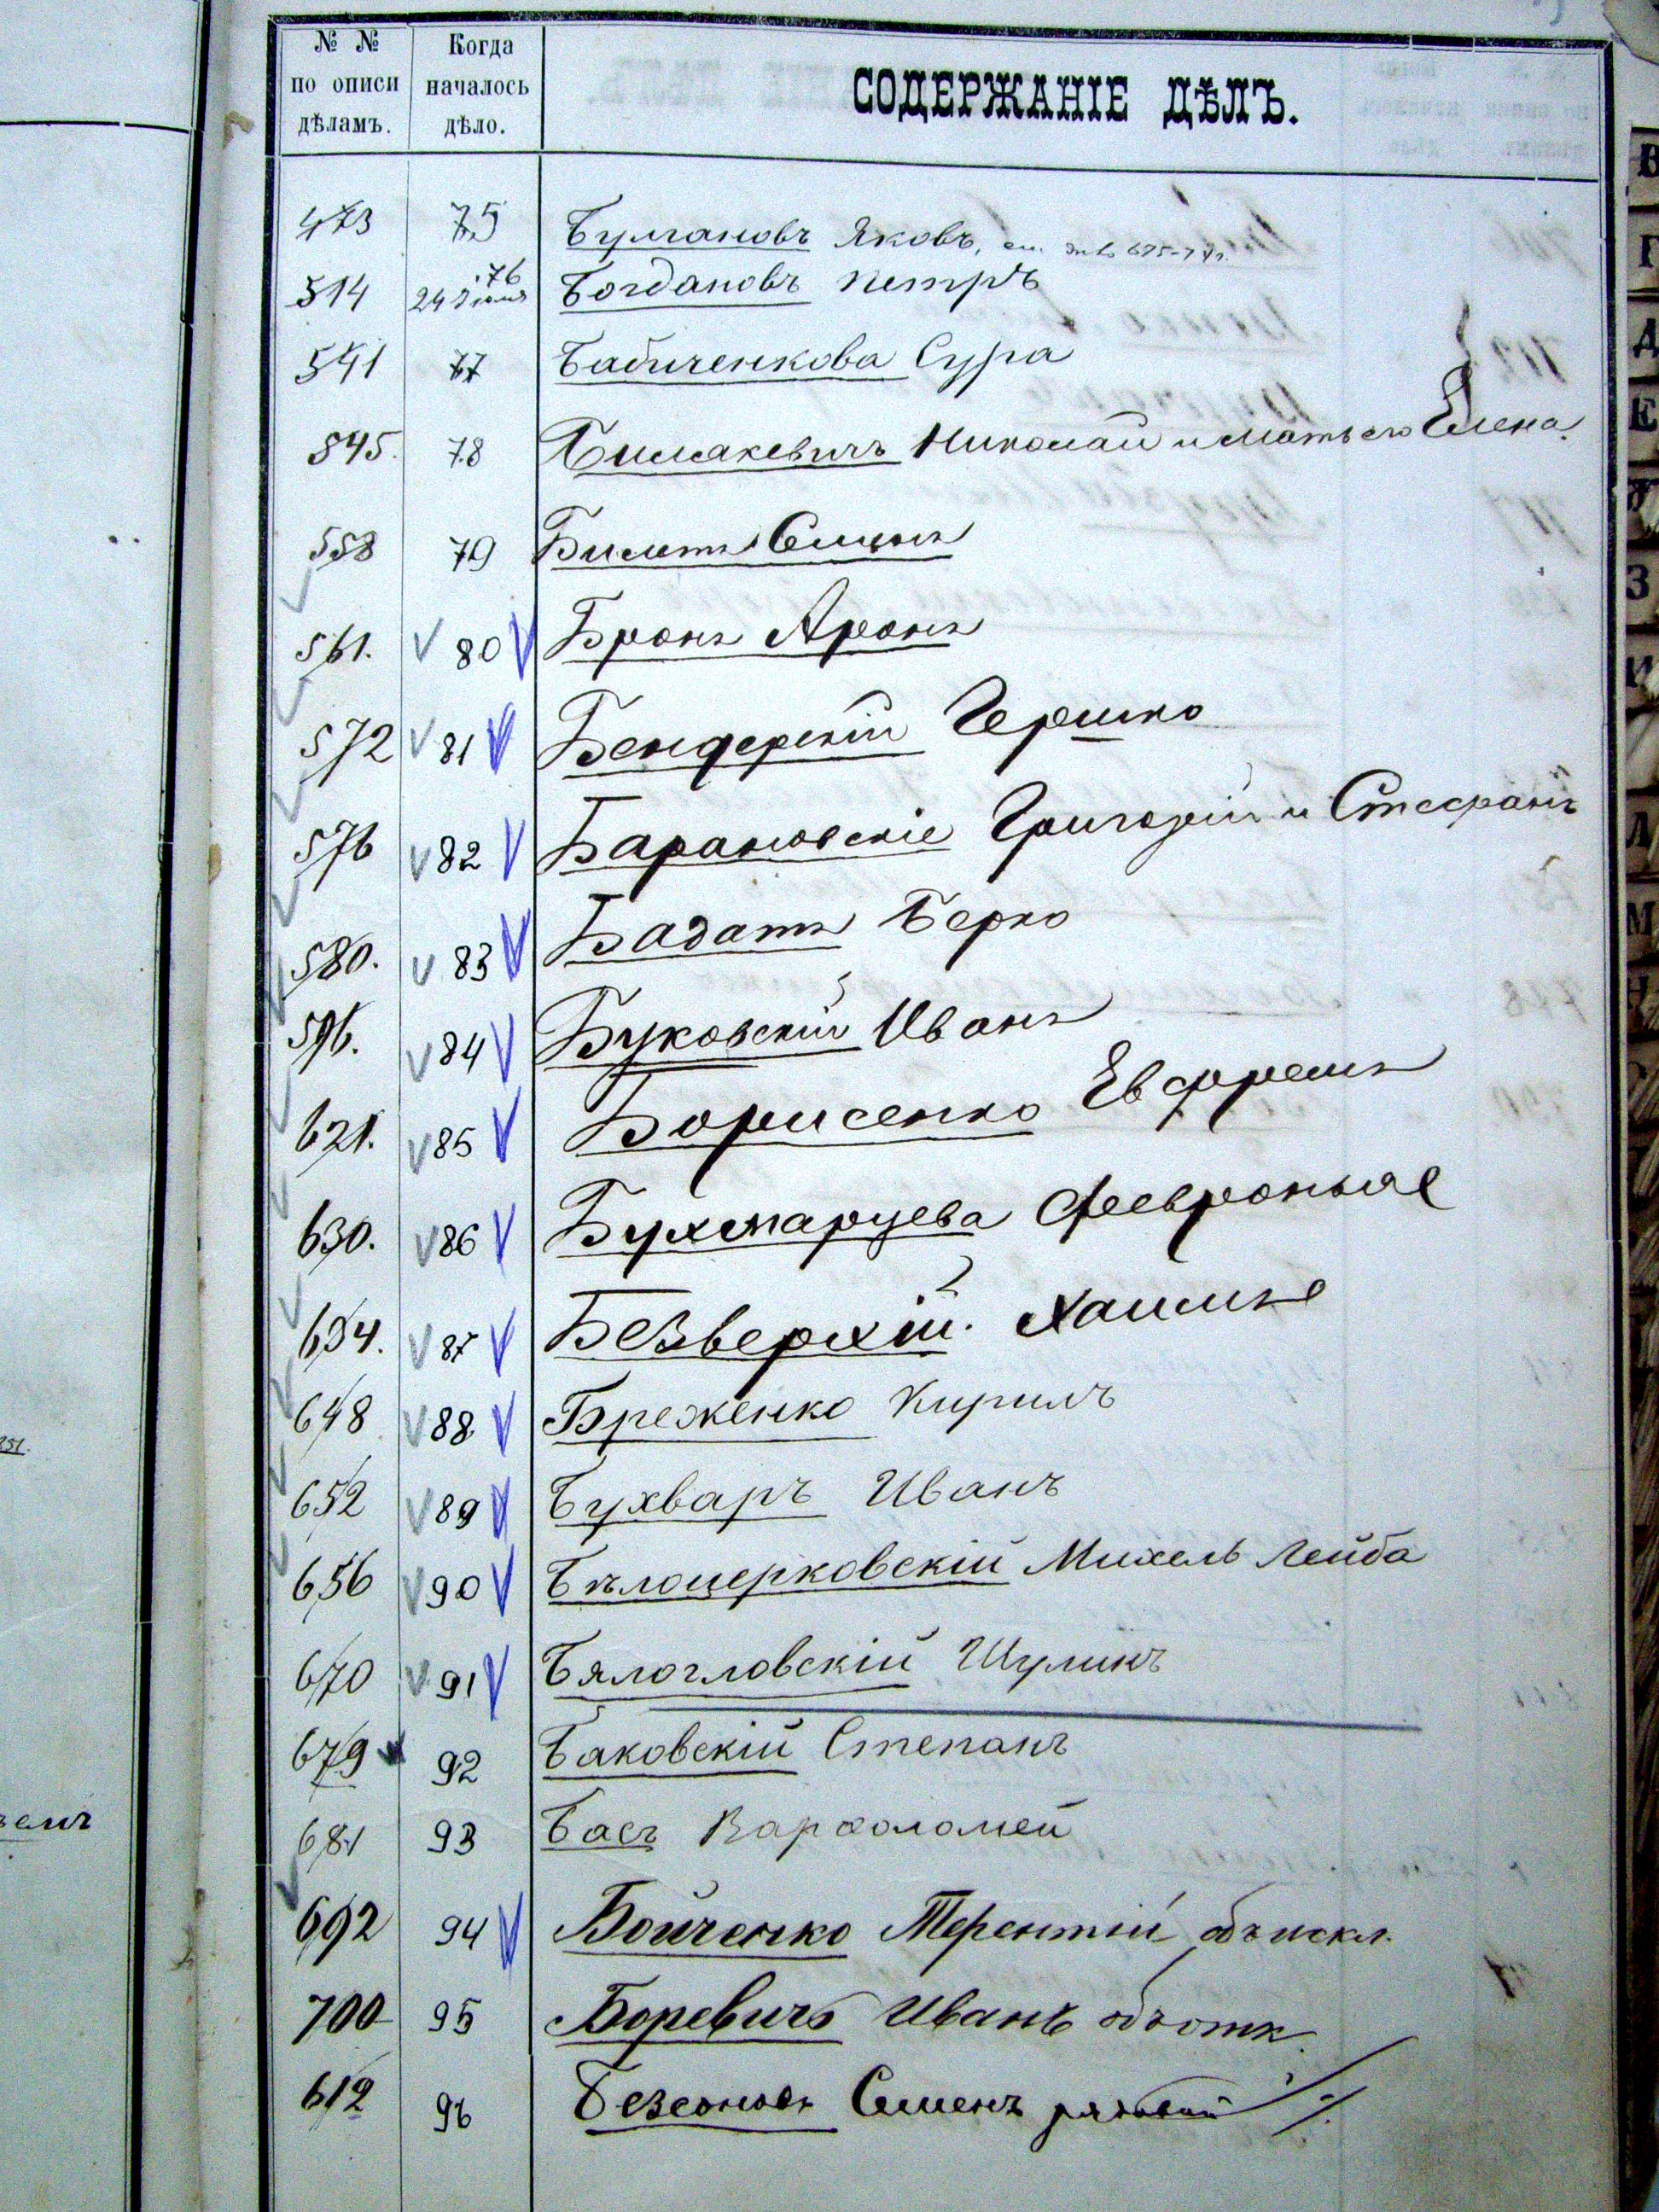 № № по описи дѣламъ. Когда началось дѣло. СОДЕРЖАНІЕ ДѢЛЪ.
473 75 Булгановъ Яковъ,
514 76 24 Іюня Богдановъ Петръ
541 77 Бабиченкова Сура
545. 78 Николай и мать его Елена.
558 79 Билетъ
561. 80 Бронъ Аронъ
572 81 Бендерскій Гершко
576 82 Барановскіе Григорій и Стефанъ
580. 83 Бадатъ Берко
596. 84 Буковскій Иванъ
621. 85 Борисенко Евфремъ
630. 86 Бухмарцева Февронья
634. 87 Безверхій Хаимъ
648 88 Бреженко Кирилъ
652 89 Бухваръ Иванъ
656 90 Бѣлоцерковскій Михель Лейба
670 91 Бялогловскій Шулимъ
679 92 Баковскій Степанъ
681 93 Басъ Варфоломей
692 94 Бойченко Терентій
700 95 Боревичъ Иванъ
612 96 Семенъ рядовой
В
Г
Д
Е
З
И
Л
М
Н